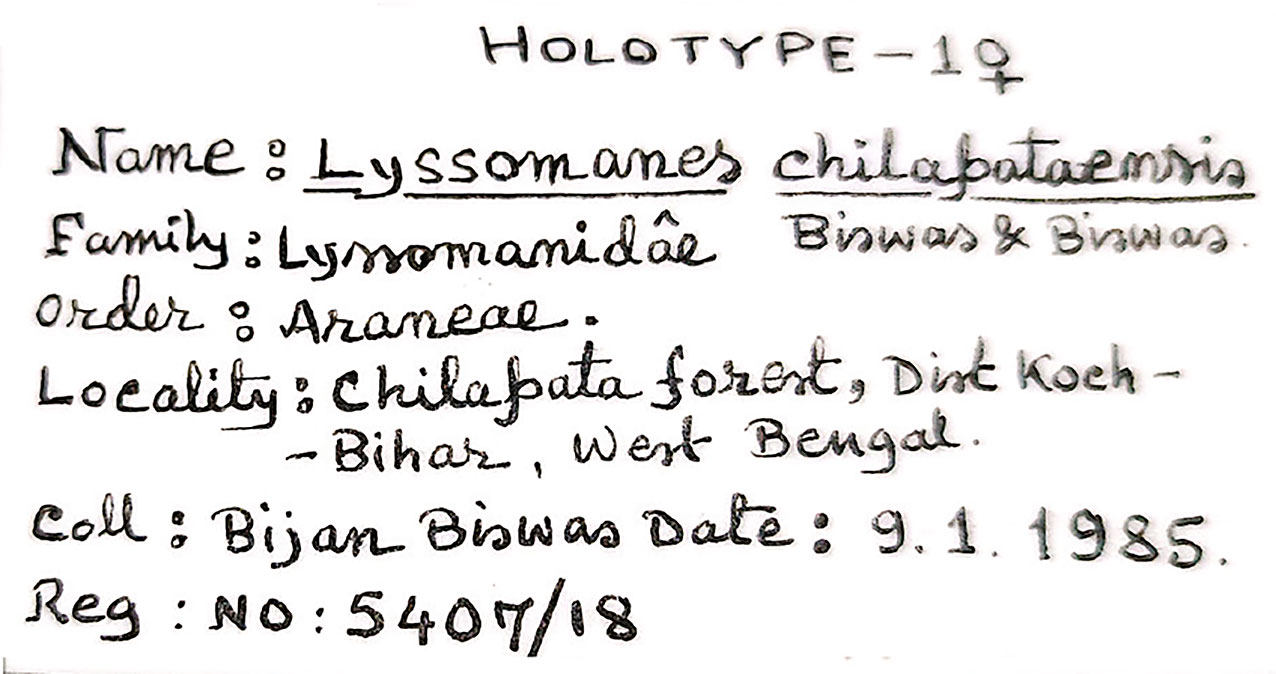 HOLOTYPE - 1♀
Name : Lyssomanes chilapataensis
Biswas & Biswas.
Family : Lyssomanidâe
Order : Araneae.
Locality : Chilapata forest, Dist Koch -
- Bihar, West Bengal.
Coll : Bijan Biswas Date : 9. 1. 1985.
Reg : NO : 5407/18